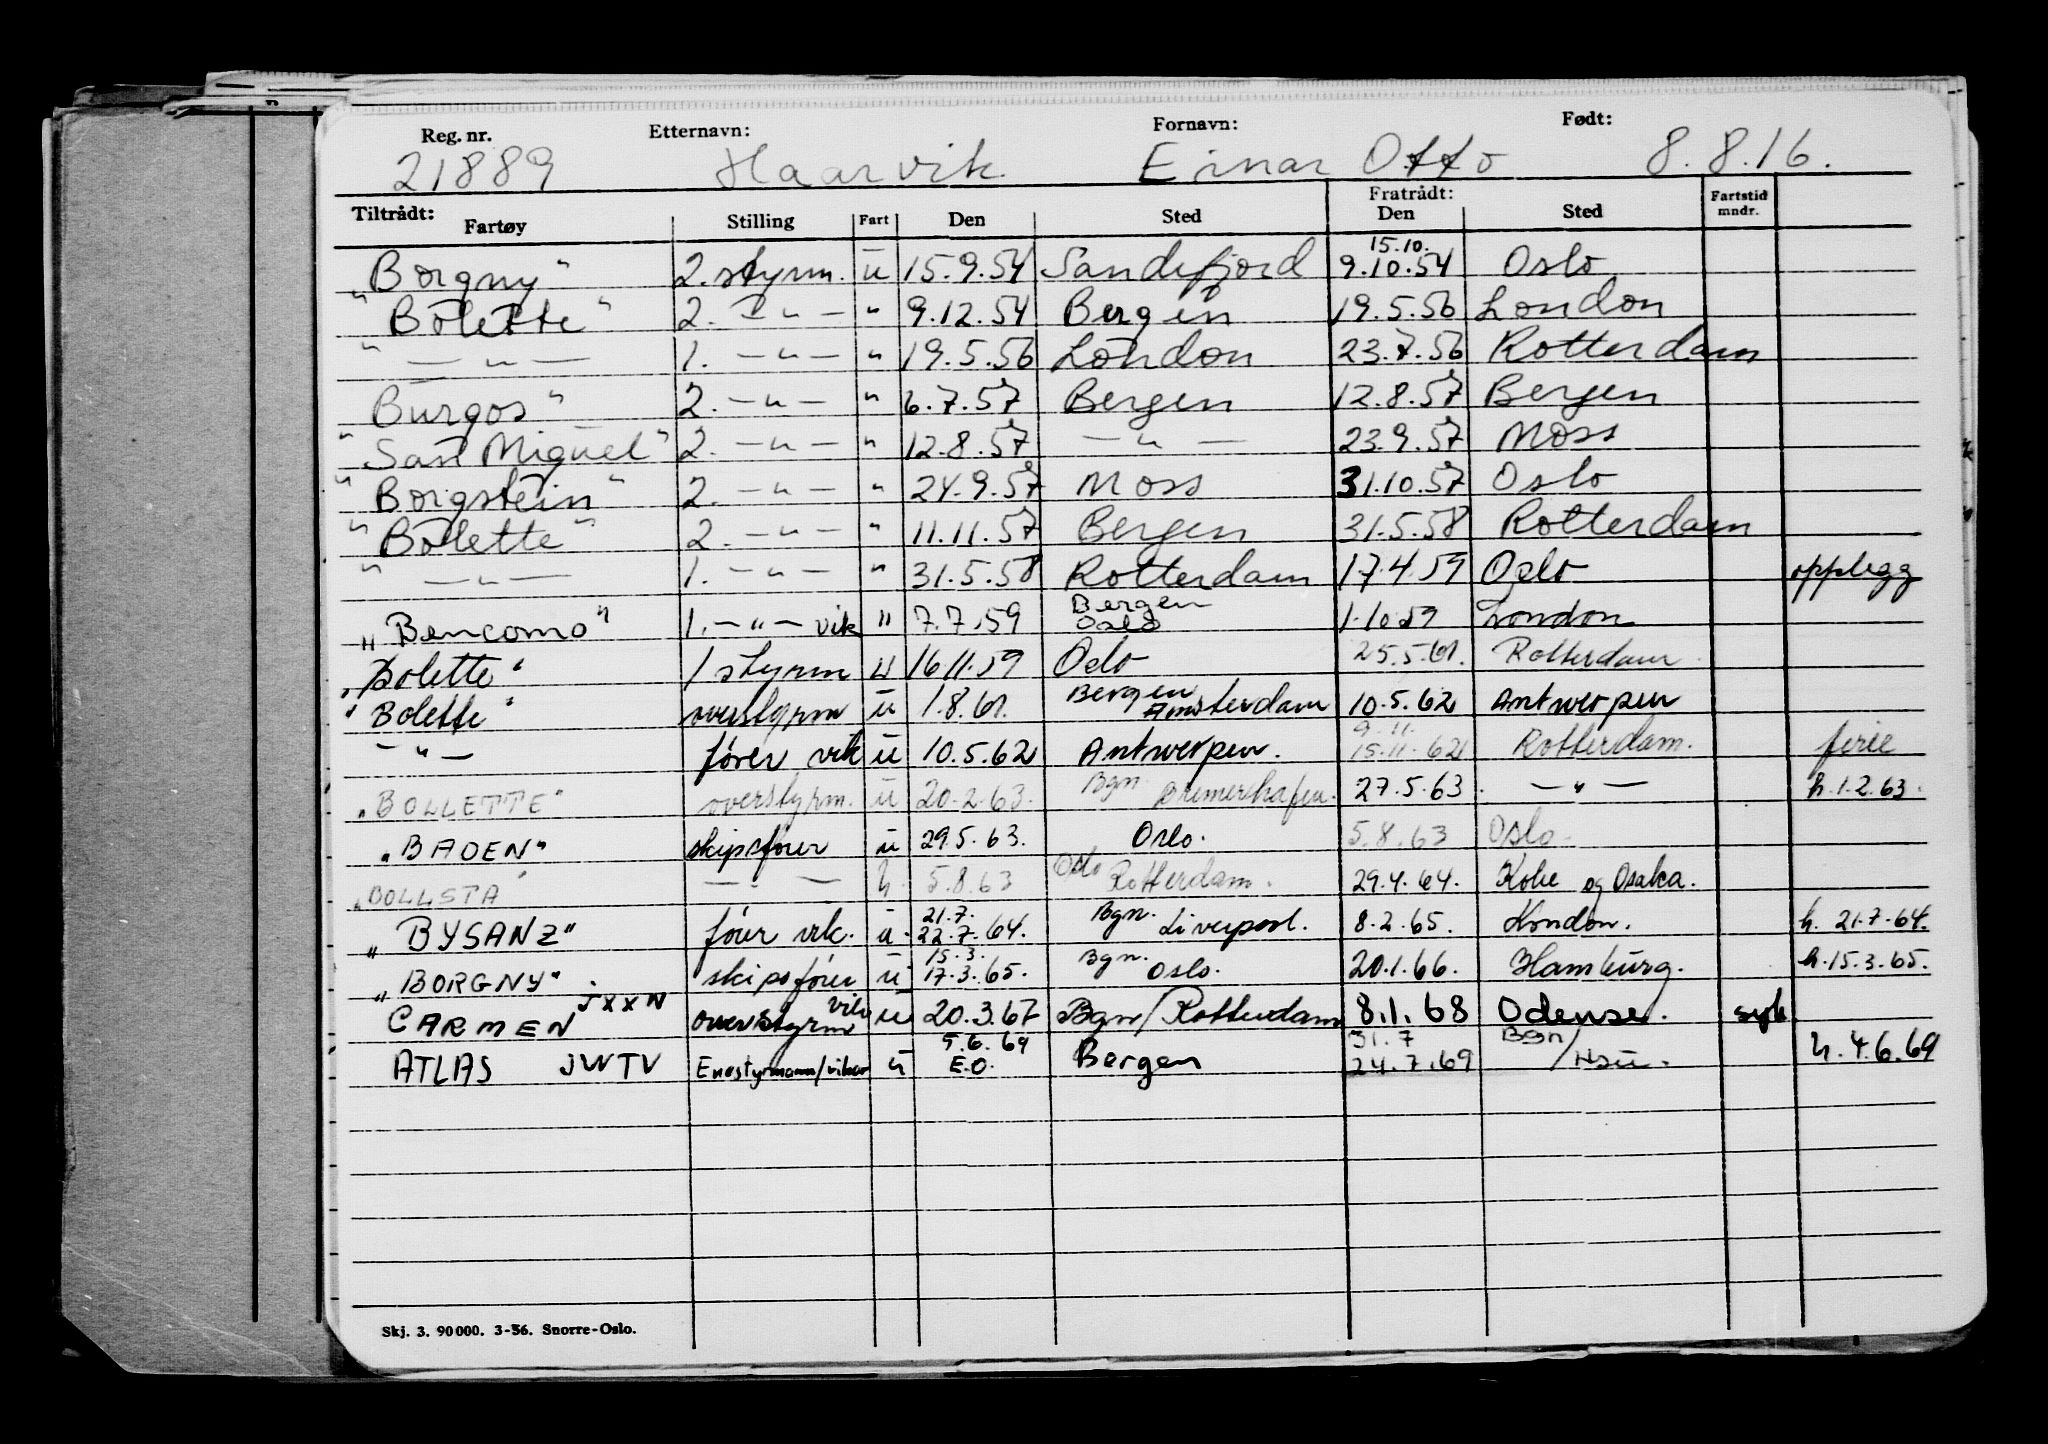 Reg. nr. Etternavn: Fornavn: Født:
21889 Haarvik Einar Otto 8.8.16.
Tiltrådt: Fratrådt: Fartstid mndr.
Fartøy Stilling Fart Den Sted Den Sted
„Borgny" 2. styrm. u 15.9.54 Sandefjord 15.10. 9.10.54 Oslo
"Bolette" 2. -"- " 9.12.54 Bergen 19.5.56 London
" -"- 1. -"- " 19.5.56 London 23.7.56 Rotterdam
Burgos" 2. -"- " 6.7.57 Bergen 12.8.57 Bergen
"San Miguel" 2. -"- " 12.8.57 -"- 23.9.57 Moss
"Borgstein" 2. -"- " 24.9.57 Moss 31.10.57 Oslo
"Bolette" 2. -"- " 11.11.57 Bergen 31.5.58 Rotterdam
" -"- 1. -"- " 31.5.58 Rotterdam 17.4.59 Oslo opplegg
„Bencomo" 1. -"- vik " 7.7.59 Bergen Oslo 1.10.59 London
„Bolette" 1 styrm u 16.11.59 Oslo 25.5.61. Rotterdam
"Bolette" overstyrm u 1.8.61. Bergen Amsterdam 10.5.62 Antwerpen
-"- fører vik u 10.5.62 Antwerpen. 9.11. 15.11.62 Rotterdam. ferie
„BOLLETTE" overstyrm. u 20.2.63. Bgn. Bremerhafen. 27.5.63. -"- h.1.2.63.
„BADEN" skipsfører u 29.5.63. Oslo. 5.8.63 Oslo.
„BOLLSTA" -"- u. 5.8.63 Oslo Rotterdam. 29.4.64. Kobe og Osaka.
„BYSANZ" fører vik. u. 21.7. 22.7.64. Bgn. Liverpool. 8.2.65. London. h. 21.7.64.
„BORGNY" skipsfører u 15.3. 17.3.65. Bgn. Oslo. 20.1.66. Hamburg. h.15.3.65.
CARMEN JXXN overstyrm vik u 20.3.67 Bgn/Rotterdam 8.1.68 Odense. syk
ATLAS JWTV Enestyrmann/vikar u 5.6.69 E.O. Bergen 31.7 24.7.69 Bgn/ h.4.6.69
Skj. 3. 90000. 3-56. Snorre-Oslo.